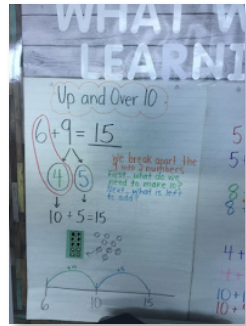 WHAT W
LEARNI
Up and Over 10
6+9=15
4 5
We break apart the
9 into 2 numbers
First, what do we
need to make 10?
Next, what is left
to add?
10+5=15
+4 +5
6 10 15
5
5
8
8
4+
10+
10+